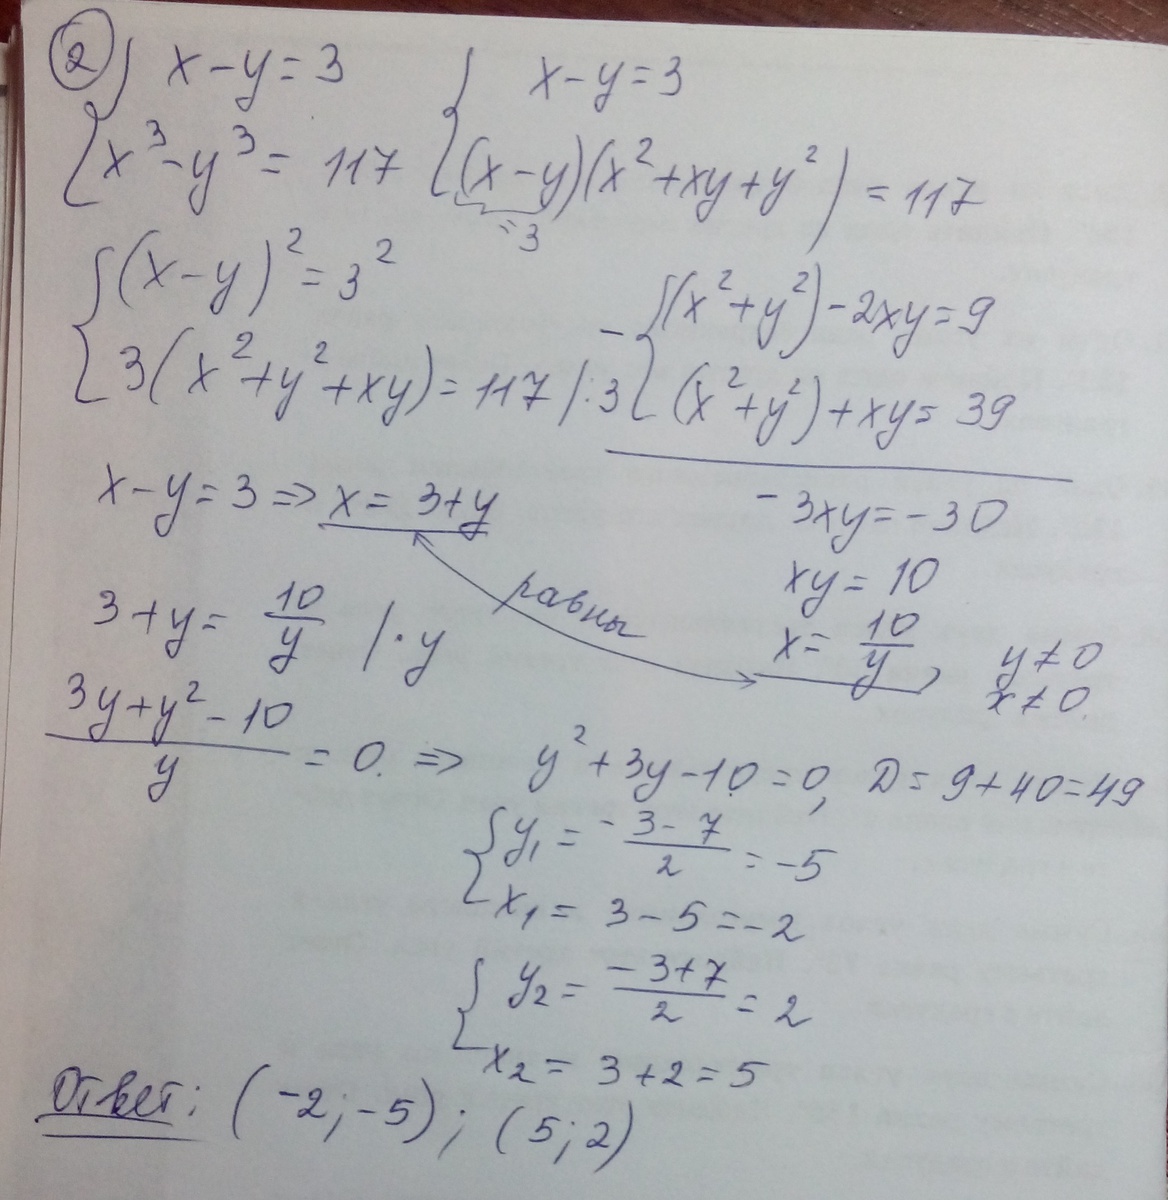 ② { x - y = 3
x³ - y³ = 117
{ x - y = 3
(x - y)(x² + xy + y²) = 117
= 3
{ (x - y)² = 3²
3(x² + y² + xy) = 117 | : 3
- { (x² + y²) - 2xy = 9
(x² + y²) + xy = 39
x - y = 3 => x = 3 + y
- 3xy = - 30
xy = 10
x = 10/y, y ≠ 0
x ≠ 0.
равны
3 + y = 10/y | · y
(3y + y² - 10)/y = 0. => y² + 3y - 10 = 0, D = 9 + 40 = 49
{ y₁ = (-3 - 7)/2 = -5
x₁ = 3 - 5 = -2
{ y₂ = (-3 + 7)/2 = 2
x₂ = 3 + 2 = 5
Ответ: (-2; -5); (5; 2)